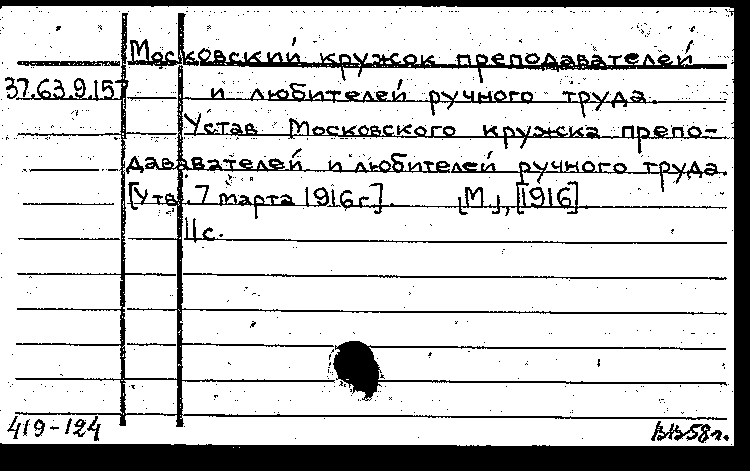 Московский кружок преподавателей
37.63.9.157 и любителей ручного труда.
Устав Московского кружка препо-
давателей и любителей ручного труда.
[Утв. 7 марта 1916 г.]. [М.], [1916].
11 с.
419-124 58 г.